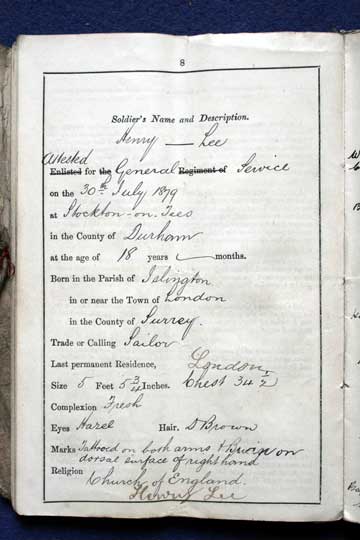 8
Soldier's Name and Description.
Henry — Lee
Attested
Enlisted for the General Regiment of Service
on the 30th July 1879
at Stockton-on-Tees
in the County of Durham
at the age of 18 years months.
Born in the Parish of Islington
in or near the Town of London
in the County of Surrey.
Trade or Calling Sailor
Last permanent Residence, London
Size 5 Feet 5 3/4 Inches. Chest 34 1/2
Complexion Fresh
Eyes Hazel Hair. D Brown
Marks Tattooed on both arms & on
dorsal surface of right hand
Religion
Church of England.
Henry Lee